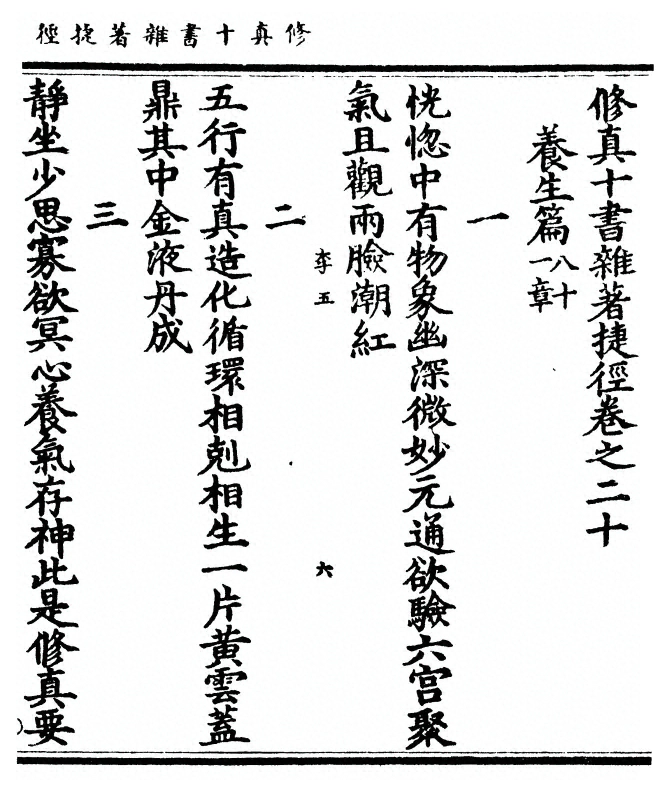 修真十書雜著捷徑
修真十書雜著捷徑卷之二十
養生篇八十一章
一
恍惚中有物象幽深微妙元通欲驗六宮聚
氣且觀兩臉潮紅
李五
六
二
五行有真造化循環相剋相生一片黃雲蓋
鼎其中金液丹成
三
靜坐少思寡欲冥心養氣存神此是修真要